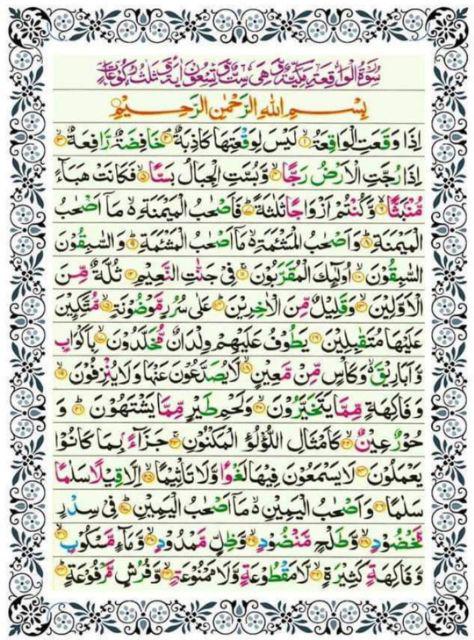 سُوْرَةُ الْوَاقِعَةِ مَكِّيَّةٌ وَّهِيَ سِتٌّ وَّتِسْعُوْنَ اٰيَةً وَّثَلٰثُ رُكُوْعَاتٍ
بِسْمِ اللّٰهِ الرَّحْمٰنِ الرَّحِيْمِ
اِذَا وَقَعَتِ الْوَاقِعَةُ ۙ﴿۱﴾ لَيْسَ لِوَقْعَتِهَا كَاذِبَةٌ ۘ﴿۲﴾ خَافِضَةٌ رَّافِعَةٌ ۙ﴿۳﴾
اِذَا رُجَّتِ الْاَرْضُ رَجًّا ۙ﴿۴﴾ وَّبُسَّتِ الْجِبَالُ بَسًّا ۙ﴿۵﴾ فَكَانَتْ هَبَآءً
مُّنْۢبَثًّا ۙ﴿۶﴾ وَّكُنْتُمْ اَزْوَاجًا ثَلٰثَةً ؕ﴿۷﴾ فَاَصْحٰبُ الْمَيْمَنَةِ ۙ مَاۤ اَصْحٰبُ
الْمَيْمَنَةِ ؕ﴿۸﴾ وَاَصْحٰبُ الْمَشْـَٔمَةِ ۙ مَاۤ اَصْحٰبُ الْمَشْـَٔمَةِ ؕ﴿۹﴾ وَالسّٰبِقُوْنَ
السّٰبِقُوْنَ ۙ﴿۱۰﴾ اُولٰٓئِكَ الْمُقَرَّبُوْنَ ۚ﴿۱۱﴾ فِيْ جَنّٰتِ النَّعِيْمِ ﴿۱۲﴾ ثُلَّةٌ مِّنَ
الْاَوَّلِيْنَ ۙ﴿۱۳﴾ وَقَلِيْلٌ مِّنَ الْاٰخِرِيْنَ ؕ﴿۱۴﴾ عَلٰى سُرُرٍ مَّوْضُوْنَةٍ ۙ﴿۱۵﴾ مُّتَّكِـِٕيْنَ
عَلَيْهَا مُتَقٰبِلِيْنَ ﴿۱۶﴾ يَطُوْفُ عَلَيْهِمْ وِلْدَانٌ مُّخَلَّدُوْنَ ۙ﴿۱۷﴾ بِاَكْوَابٍ
وَّاَبَارِيْقَ ۙ وَكَاْسٍ مِّنْ مَّعِيْنٍ ۙ﴿۱۸﴾ لَّا يُصَدَّعُوْنَ عَنْهَا وَلَا يُنْزِفُوْنَ ۙ﴿۱۹﴾
وَفَاكِهَةٍ مِّمَّا يَتَخَيَّرُوْنَ ۙ﴿۲۰﴾ وَلَحْمِ طَيْرٍ مِّمَّا يَشْتَهُوْنَ ؕ﴿۲۱﴾ وَ
حُوْرٌ عِيْنٌ ۙ﴿۲۲﴾ كَاَمْثَالِ اللُّؤْلُوٴِ الْمَكْنُوْنِ ۚ﴿۲۳﴾ جَزَآءًۢ بِمَا كَانُوْا
يَعْمَلُوْنَ ﴿۲۴﴾ لَا يَسْمَعُوْنَ فِيْهَا لَغْوًا وَّلَا تَاْثِيْمًا ۙ﴿۲۵﴾ اِلَّا قِيْلًا سَلٰمًا
سَلٰمًا ﴿۲۶﴾ وَاَصْحٰبُ الْيَمِيْنِ ۙ مَاۤ اَصْحٰبُ الْيَمِيْنِ ؕ﴿۲۷﴾ فِيْ سِدْرٍ
مَّخْضُوْدٍ ۙ﴿۲۸﴾ وَّطَلْحٍ مَّنْضُوْدٍ ۙ﴿۲۹﴾ وَّظِلٍّ مَّمْدُوْدٍ ۙ﴿۳۰﴾ وَّمَآءٍ مَّسْكُوْبٍ ۙ﴿۳۱﴾
وَّفَاكِهَةٍ كَثِيْرَةٍ ۙ﴿۳۲﴾ لَّا مَقْطُوْعَةٍ وَّلَا مَمْنُوْعَةٍ ۙ﴿۳۳﴾ وَّفُرُشٍ مَّرْفُوْعَةٍ ؕ﴿۳۴﴾